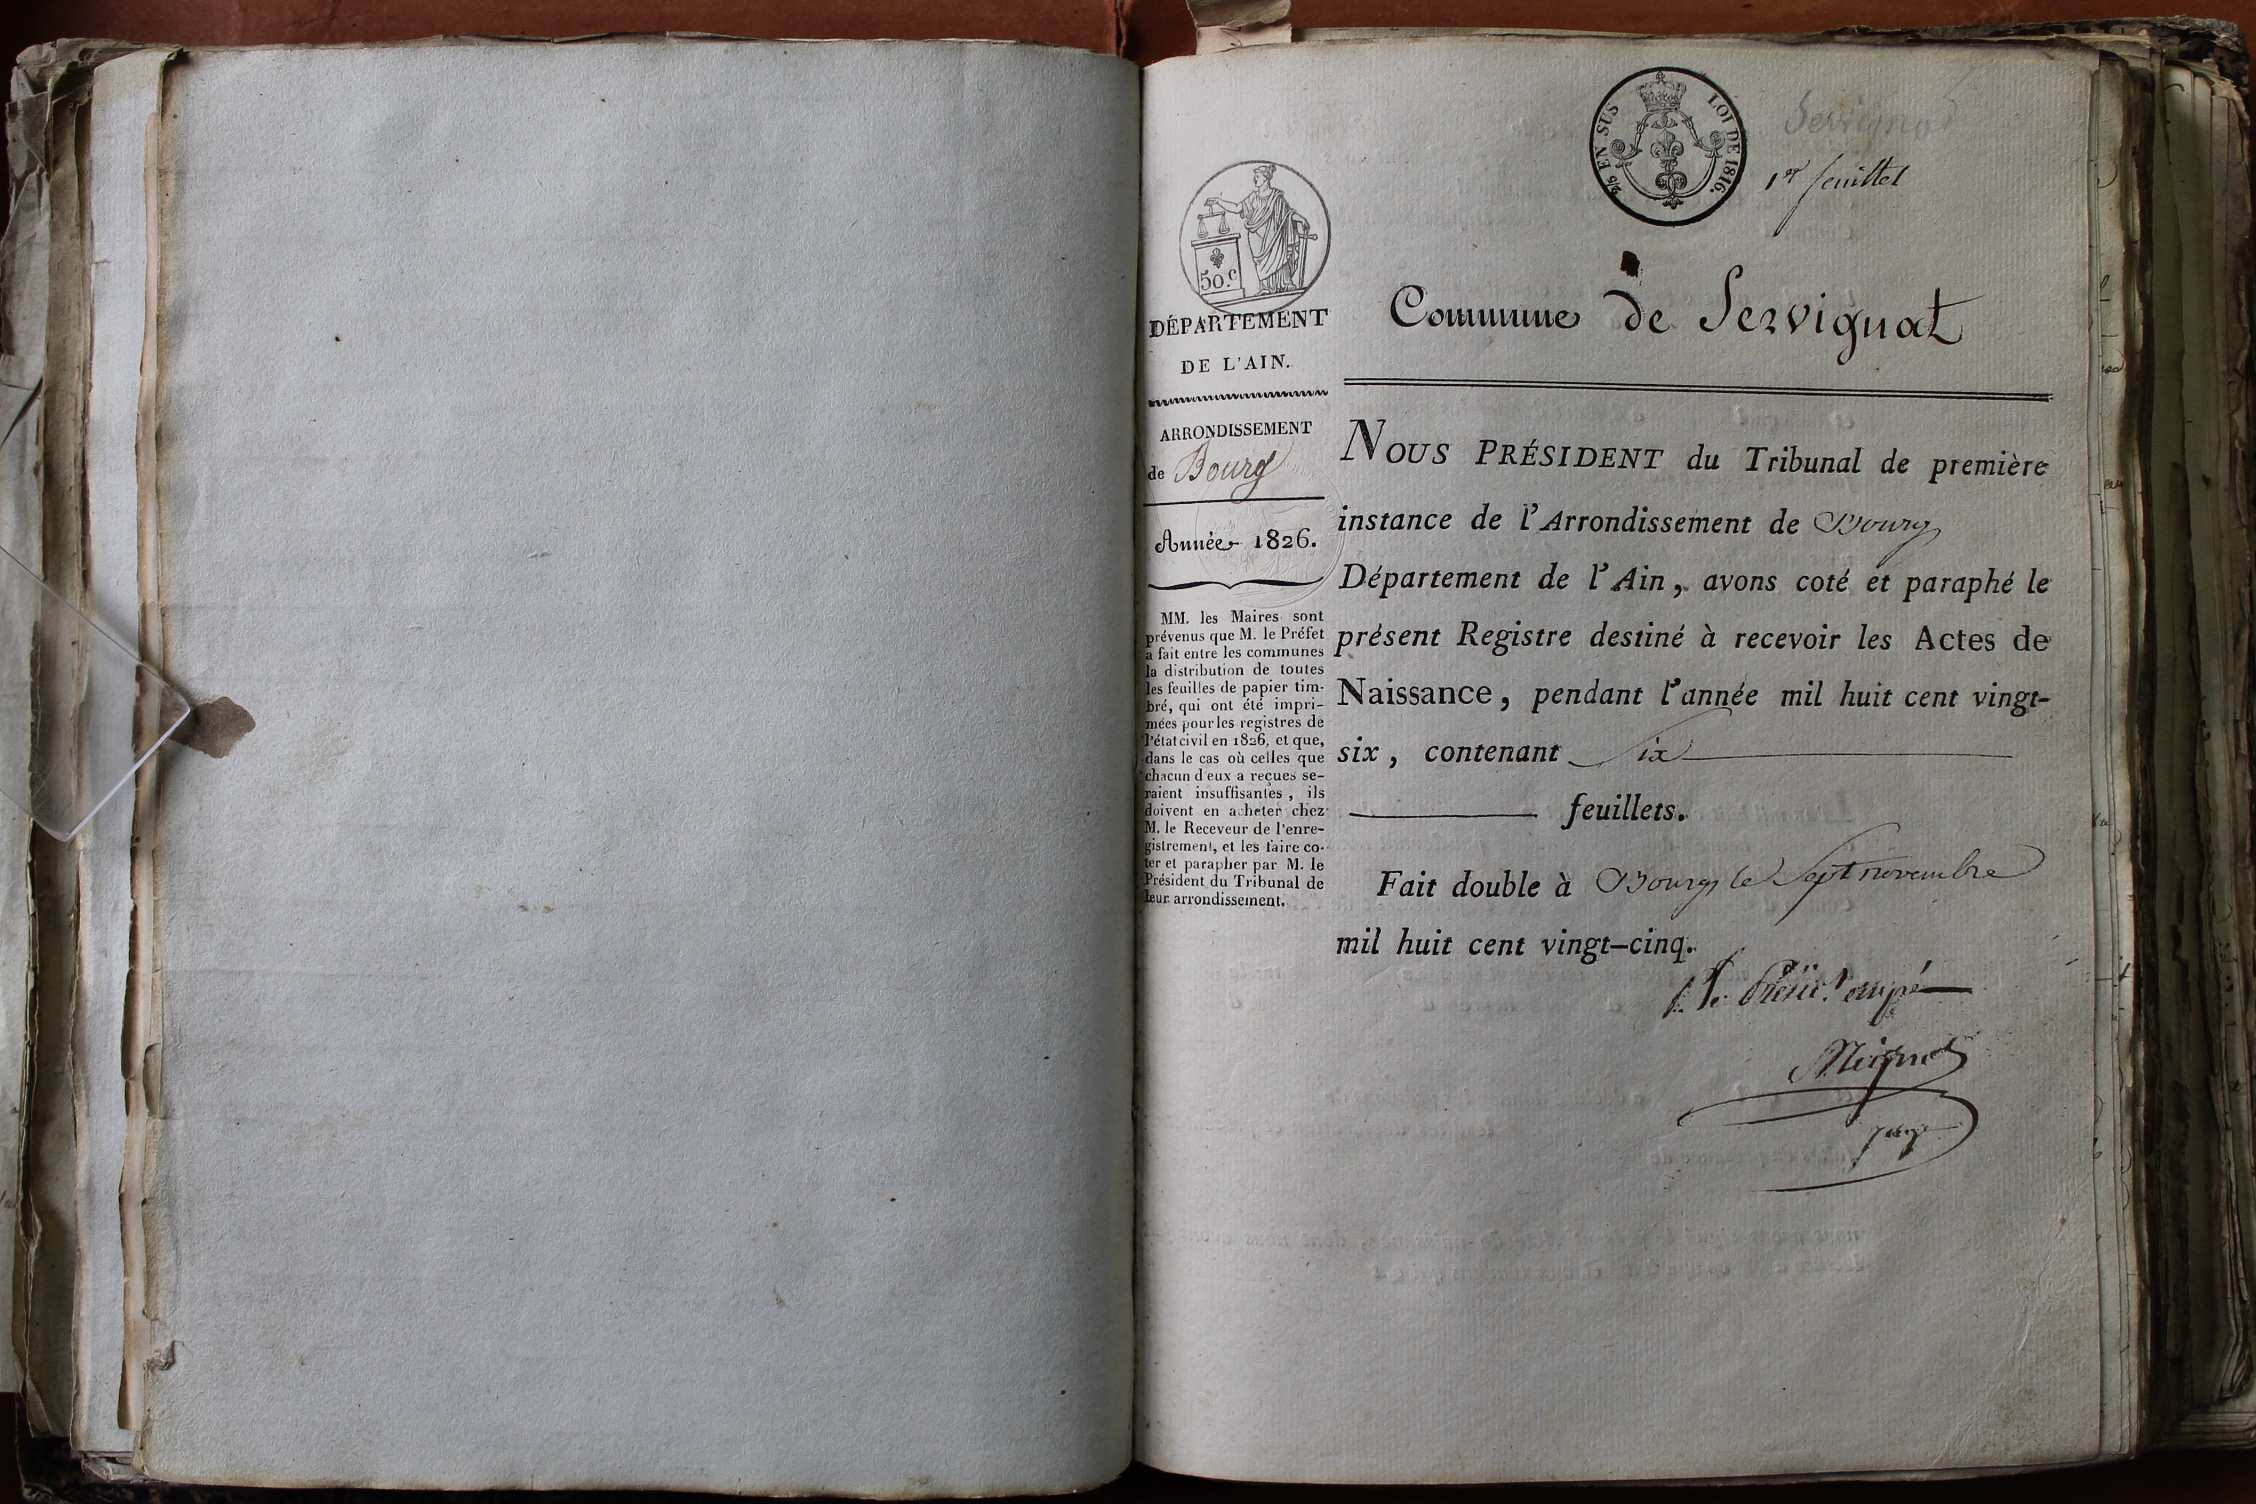 Servignat
2/5 EN SUS LOI DE 1816.
1er feuillet
50.c
DÉPARTEMENT
DE L'AIN.
ARRONDISSEMENT
de Bourg
Année 1826.
MM. les Maires sont
prévenus que M. le Préfet
a fait entre les communes
la distribution de toutes
les feuilles de papier tim-
bré, qui ont été impri-
mées pour les registres de
l'état civil en 1826, et que,
dans le cas où celles que
chacun d'eux a reçues se-
raient insuffisantes, ils
doivent en acheter chez
M. le Receveur de l'enre-
gistrement, et les faire co-
ter et parapher par M. le
Président du Tribunal de
leur arrondissement.
Commune de Servignat
NOUS PRÉSIDENT du Tribunal de première
instance de l'Arrondissement de Bourg
Département de l'Ain, avons coté et paraphé le
présent Registre destiné à recevoir les Actes de
Naissance, pendant l'année mil huit cent vingt-
six, contenant Six
feuillets.
Fait double à Bourg le Sept novembre
mil huit cent vingt-cinq.
p. le Présid.t empé